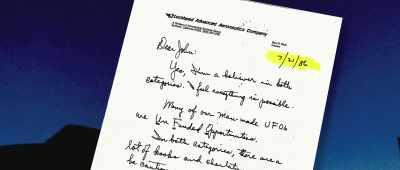 Lockheed Advanced Aeronautics Company
7/21/86
Dear John:
Yes, I'm a believer in both
categories. I feel everything is possible.
Many of our man made UFOs
are Un Funded Opportunities.
In both categories, there are a
lot of kooks and charlatans
be cautious